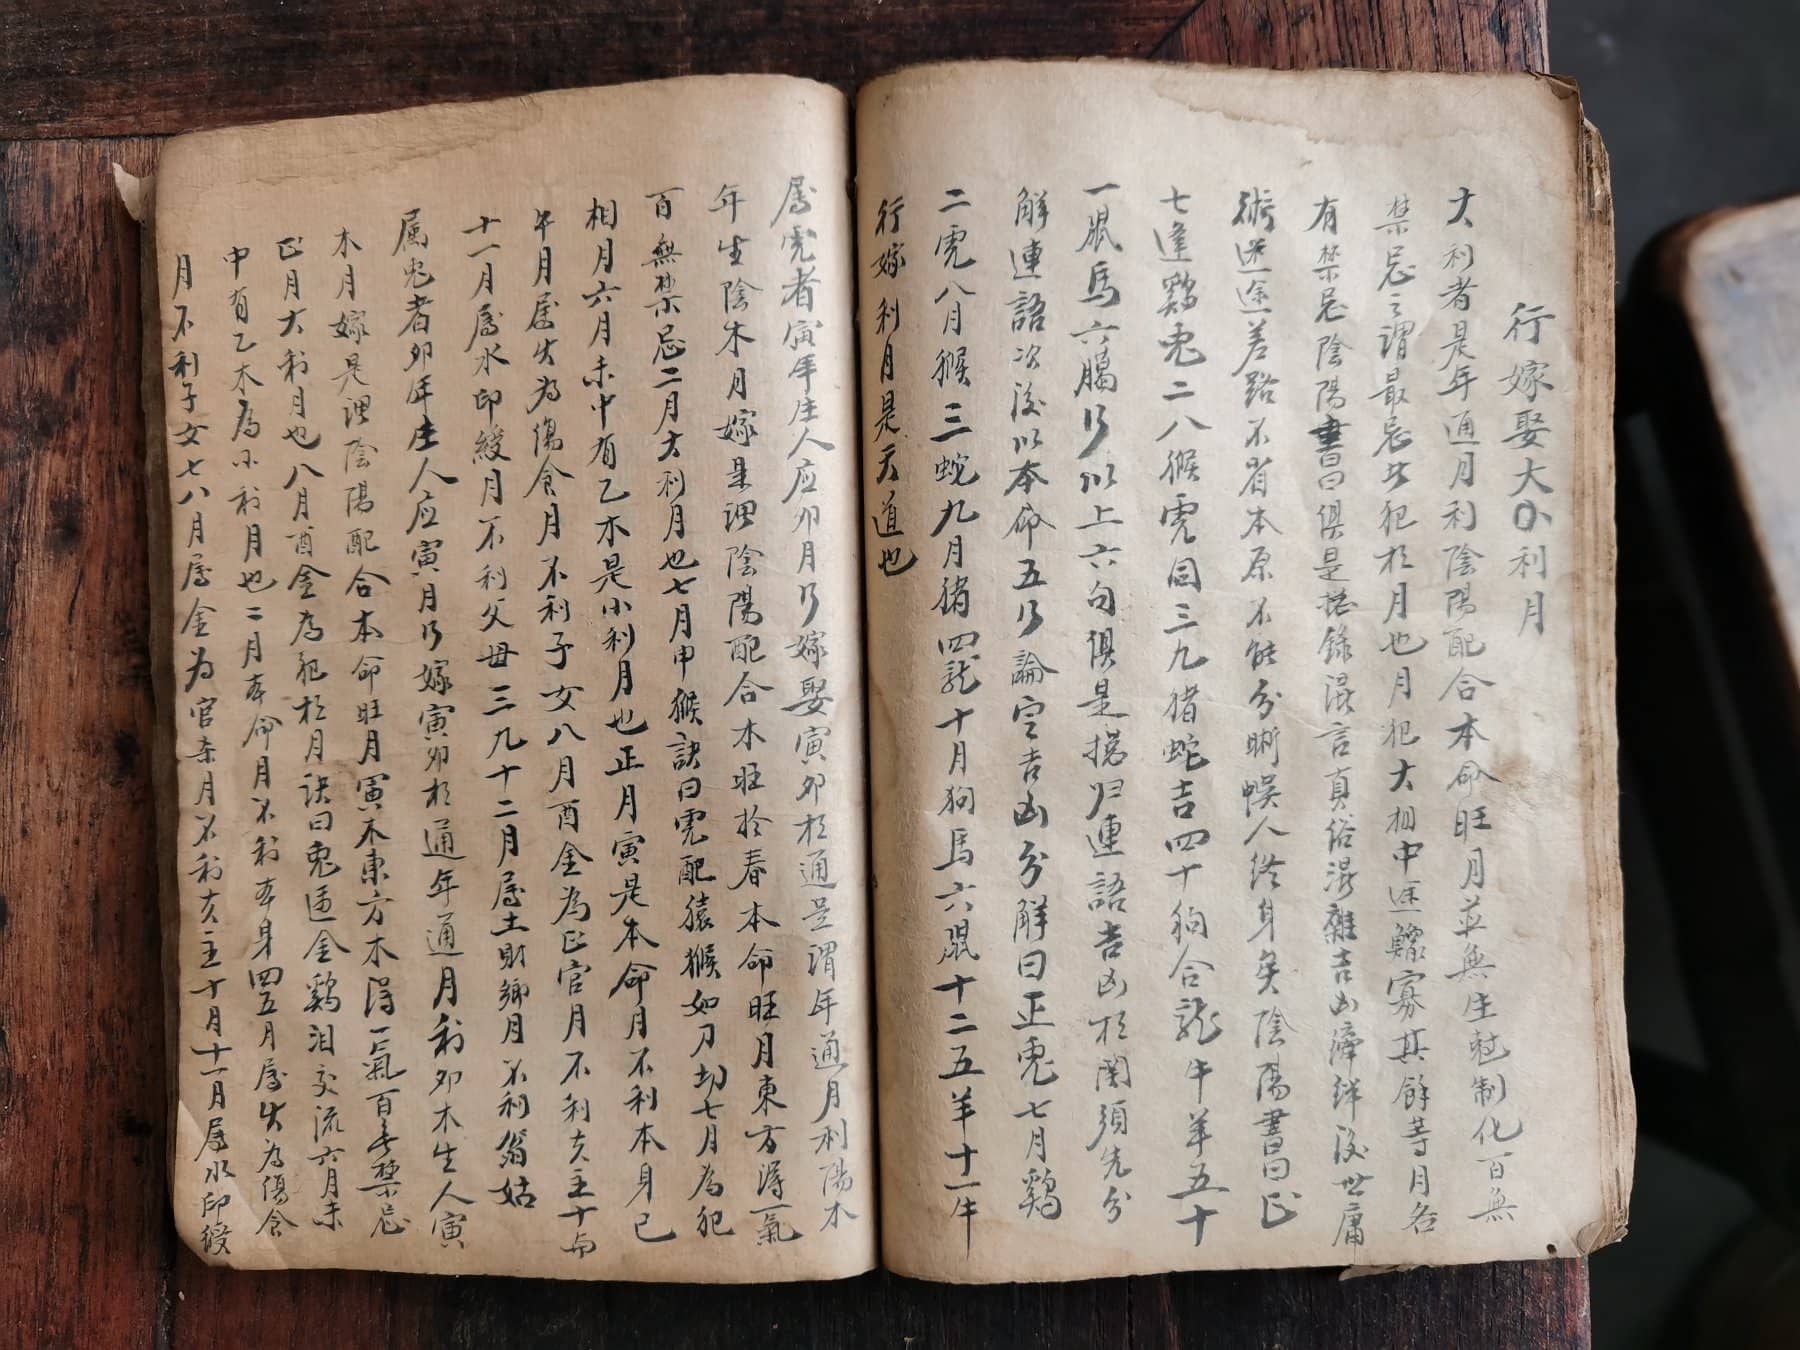 行嫁娶大小利月
大利者是年通月利陰陽配合本命旺月並無生尅制化百無
禁忌之謂最忌者犯於月也月犯大相中途鰥寡其餘等月各
有禁忌陰陽書曰俱是捴錄混言真俗混雜吉凶滓絆後世庸
術迷途差路不省本原不能分晰悞人終身矣陰陽書曰正
七逢鷄兎二八猴虎同三九猪蛇吉四十狗合龍牛羊五十
一鼠馬六臈乃以上六句俱是捴归連語吉凶於閑須先分
解連語次後以本命五乃論定吉凶分解曰正兎七月鷄
二虎八月猴三蛇九月猪四龍十月狗馬六鼠十二五羊十一牛
行嫁利月是天道也
属虎者寅年生人应卯月乃嫁娶寅卯於通是謂年通月利陽木
年生陰木月嫁是謂陰陽配合木旺於春本命旺月東方得一氣
百無禁忌二月大利月也七月申猴訣曰虎配猿猴如刀切七月為犯
相月六月未中有乙木是小利月也正月寅是本命月不利本身巳
午月屬火為傷食月不利子女八月酉金為正官月不利夫主十与
十一月屬水印綬月不利父母三九十二月屬土財鄉月不利翁姑
属兎者卯年生人应寅月乃嫁寅卯於通年通月利卯木生人寅
木月嫁是謂陰陽配合本命旺月寅木東方木得一氣百無禁忌
正月大利月也八月酉金為犯於月訣曰兎逢金鷄泪交流六月未
中有乙木為小利月也二月本命月不利本身四五月屬火為傷食
月不利子女七八月屬金为官杀月不利夫主十月十一月屬水印綬